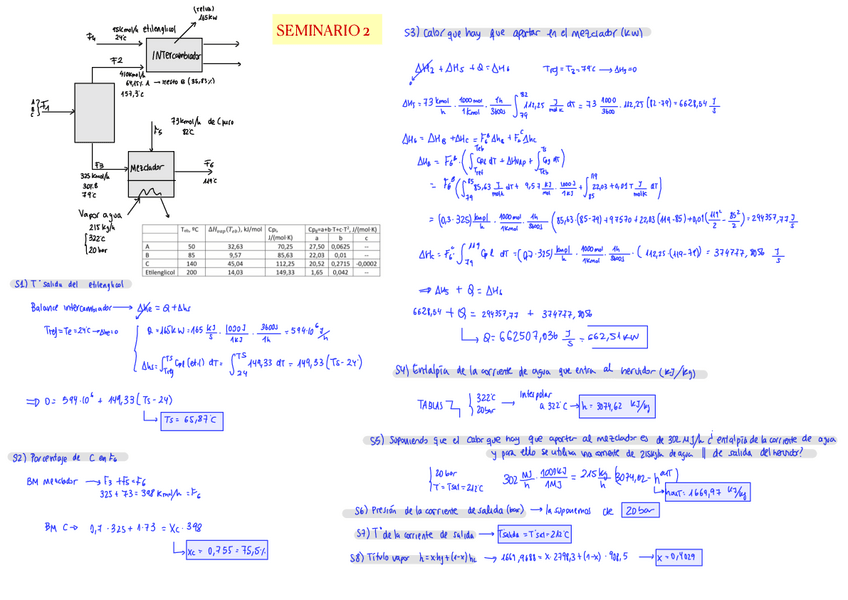 (relva)
165KW
95Kmol/h etilenglicol
F4 24ºC
INTercambiador
F2
410Kmol/h
157,5ºC
A
B
C
F1
73Kmol/h de C puro
82ºC
F5
F3
325 Kmol/h
30% B
79ºC
Mezclador
F6
119ºC
Vapor agua
215 Kg/h
322ºC
20 bar
SEMINARIO 2
Teb, ºC ΔHvap(Teb), kJ/mol CpL, J/(mol·K) Cpg=a+b·T+c·T², J/(mol·K)
a b c
A 50 32,63 70,25 27,50 0,0625 --
B 85 9,57 85,63 22,03 0,01 --
C 140 45,04 112,25 20,52 0,2715 -0,0002
Etilenglicol 200 14,03 149,33 1,65 0,042 --
S1) Tª salida del etilenglicol
Balance intercambiador → ΔHe = Q + ΔHs
Tref = Te = 24ºC → ΔHe = 0
Q = 165KW = 165 KJ/s · 1000J/1KJ · 3600s/1h = 594·10⁶ J/h
ΔHs = ∫ Ts Tref CpL(etil) dT = ∫ Ts 24 149,33 dT = 149,33 (Ts - 24)
⇒ 0 = 594·10⁶ + 149,33 (Ts - 24)
Ts = 65,87ºC
S2) Porcentaje de C en F6
BM Mezclador → F3 + F5 = F6
325 + 73 = 398 Kmol/h = F6
BM C → 0,7 · 325 + 1·73 = Xc · 398
Xc = 0,755 = 75,5%
S3) Calor que hay que aportar en el mezclador (KW)
ΔH2 + ΔH5 + Q = ΔH6 Tref = T2 = 79ºC → ΔH3 = 0
ΔH5 = 73 Kmol/h · 1000mol/1Kmol · 1h/3600s ∫ 82 79 112,25 J/molK dT = 73 · 1000/3600 · 112,25 (82-79) = 6628,04 J/s
ΔH6 = ΔHB + ΔHC = F6ᴮ ΔhB + F6ᶜ ΔhC
ΔHB = F6ᴮ · ( ∫ Teb Tref CpL dT + ΔHvap + ∫ Ts Teb Cpg dT )
= F6ᴮ ( ∫ 85 79 85,63 J/molK dT + 9,57 KJ/mol · 1000J/1KJ + ∫ 119 85 22,03 + 0,01T J/molK dT )
= (0,3·325) Kmol/h · 1000mol/1Kmol · 1h/3600s · (85,63·(85-79) + 9570 + 22,03 (119-85) + 0,01 (119²/2 - 85²/2)) = 294357,77 J/s
ΔHC = F6ᶜ · ∫ 119 79 CpL dT = (0,7·325) Kmol/h · 1000mol/1Kmol · 1h/3600s · (112,25 · (119-79)) = 374777,8056 J/s
⇒ ΔH5 + Q = ΔH6
6628,04 + Q = 294357,77 + 374777,8056
Q = 662507,036 J/s = 662,51 KW
S4) Entalpía de la corriente de agua que entra al hervidor (KJ/Kg)
TABLAS 322ºC 20bar → Interpolar a 322ºC → h = 3074,62 KJ/kg
S5) Suponiendo que el calor que hay que aportar al mezclador es de 302 MJ/h ¿entalpía de la corriente de agua
y para ello se utiliza una corriente de 215Kg/h de agua de salida del hervidor?
20 bar
T = Tsat = 212ºC
302 MJ/h · 1000KJ/1MJ = 215 Kg/h (3074,62 - hout)
hout = 1669,97 KJ/kg
S6) Presión de la corriente de salida (bar) → la suponemos de 20 bar
S7) Tª de la corriente de salida → Tsalida = Tsat = 212ºC
S8) Título vapor h = xhg + (1-x) hL → 1669,9688 = x · 2798,3 + (1-x) · 908,5 → x = 0,4029